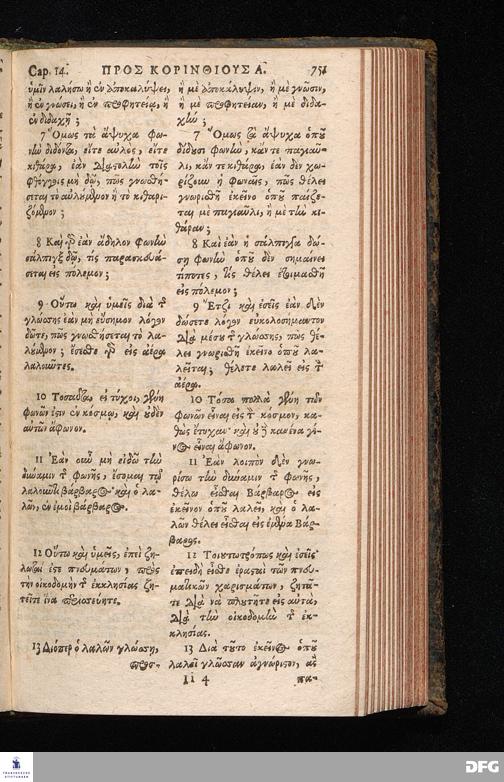 Cap. 14. ΠΡΟΣ ΚΟΡΙΝΘΙΟΥΣ Α. 751
ὑμῖν λαλήσω ἢ ἐν ἀποκαλύψει,
ἢ ἐν γνώσει, ἢ ἐν προφητείᾳ, ἢ
ἐν διδαχῇ;
7 Ὅμως τὰ ἄψυχα φω-
νὴν διδόντα, εἴτε αὐλὸς, εἴτε
κιθάρα, ἐὰν διαστολὴν τοῖς
φθόγγοις μὴ δῷ, πῶς γνωσθή-
σεται τὸ αὐλούμενον ἢ τὸ κιθαρι-
ζόμενον;
8 Καὶ γὰρ ἐὰν ἄδηλον φωνὴν
σάλπιγξ δῷ, τίς παρασκευά-
σεται εἰς πόλεμον;
9 Οὕτω καὶ ὑμεῖς διὰ τῆς
γλώσσης ἐὰν μὴ εὔσημον λόγον
δῶτε, πῶς γνωσθήσεται τὸ λα-
λούμενον; ἔσεσθε γὰρ εἰς ἀέρα
λαλοῦντες.
10 Τοσαῦτα, εἰ τύχοι, γένη
φωνῶν ἐστιν ἐν κόσμῳ, καὶ οὐδὲν
αὐτῶν ἄφωνον.
11 Ἐὰν οὖν μὴ εἰδῶ τὴν
δύναμιν τῆς φωνῆς, ἔσομαι τῷ
λαλοῦντι βάρβαρος· καὶ ὁ λα-
λῶν, ἐν ἐμοὶ βάρβαρος.
12 Οὕτω καὶ ὑμεῖς, ἐπεὶ ζη-
λωταί ἐστε πνευμάτων, πρὸς
τὴν οἰκοδομὴν τῆς ἐκκλησίας ζη-
τεῖτε ἵνα περισσεύητε.
13 Διόπερ ὁ λαλῶν γλώσσῃ,
προσ-
ἢ μὲ ἀποκάλυψιν, ἢ μὲ γνῶσιν,
ἢ μὲ προφητείαν, ἢ μὲ διδα-
χήν;
7 Ὅμως τὰ ἄψυχα ὁποῦ
δίδουσι φωνὴν, κἄντε παγιαῦ-
λι, κἄντε κιθάρα, ἐὰν δὲν χω-
ρίζουν ἡ φωναῖς, πῶς θέλει
γνωρισθῆ ἐκεῖνο ὁποῦ παίζε-
ται μὲ παγιαῦλι, ἢ μὲ τὴν κι-
θάραν;
8 Καὶ ἐὰν ἡ σάλπιγξα δώ-
σῃ φωνὴν ὁποῦ δὲν σημαίνει
τίποτες, τίς θέλει ἑτοιμασθῆ
εἰς πόλεμον;
9 Ἔτζι καὶ ἐσεῖς ἐὰν δὲν
δώσετε λόγον εὐκολοσήμαντον
διὰ μέσου τῆς γλώσσης, πῶς θέ-
λει γνωρισθῆ ἐκεῖνο ὁποῦ λα-
λεῖται; θέλετε λαλεῖ εἰς τὸν
ἀέρα.
10 Τόσα πολλὰ γένη τῶν
φωνῶν εἶναι εἰς τὸν κόσμον, κα-
θὼς ἔτυχαν· καὶ οὐδὲ κανένα γέ-
νος εἶναι ἄφωνον.
11 Ἐὰν λοιπὸν δὲν γνω-
ρίσω τὴν δύναμιν τῆς φωνῆς,
θέλω εἶσθαι βάρβαρος εἰς
ἐκεῖνον ὁποῦ λαλεῖ, καὶ ὁ λα-
λῶν θέλει εἶσθαι εἰς ἐμένα βάρ-
βαρος.
12 Τοιουτοτρόπως καὶ ἐσεῖς
ἐπειδὴ εἶσθε ἐρασταὶ τῶν πνευ-
ματικῶν χαρισμάτων, ζητᾶ-
τε διὰ νὰ πλουτῆτε εἰς αὐτὰ,
διὰ τὴν οἰκοδομὴν τῆς ἐκ-
κλησίας.
13 Διὰ τοῦτο ἐκεῖνος ὁποῦ
λαλεῖ γλῶσσαν ἀγνώριστον, ἂς
Ii 4 πα-
FRANCKESCHE
STIFTUNGEN
DFG